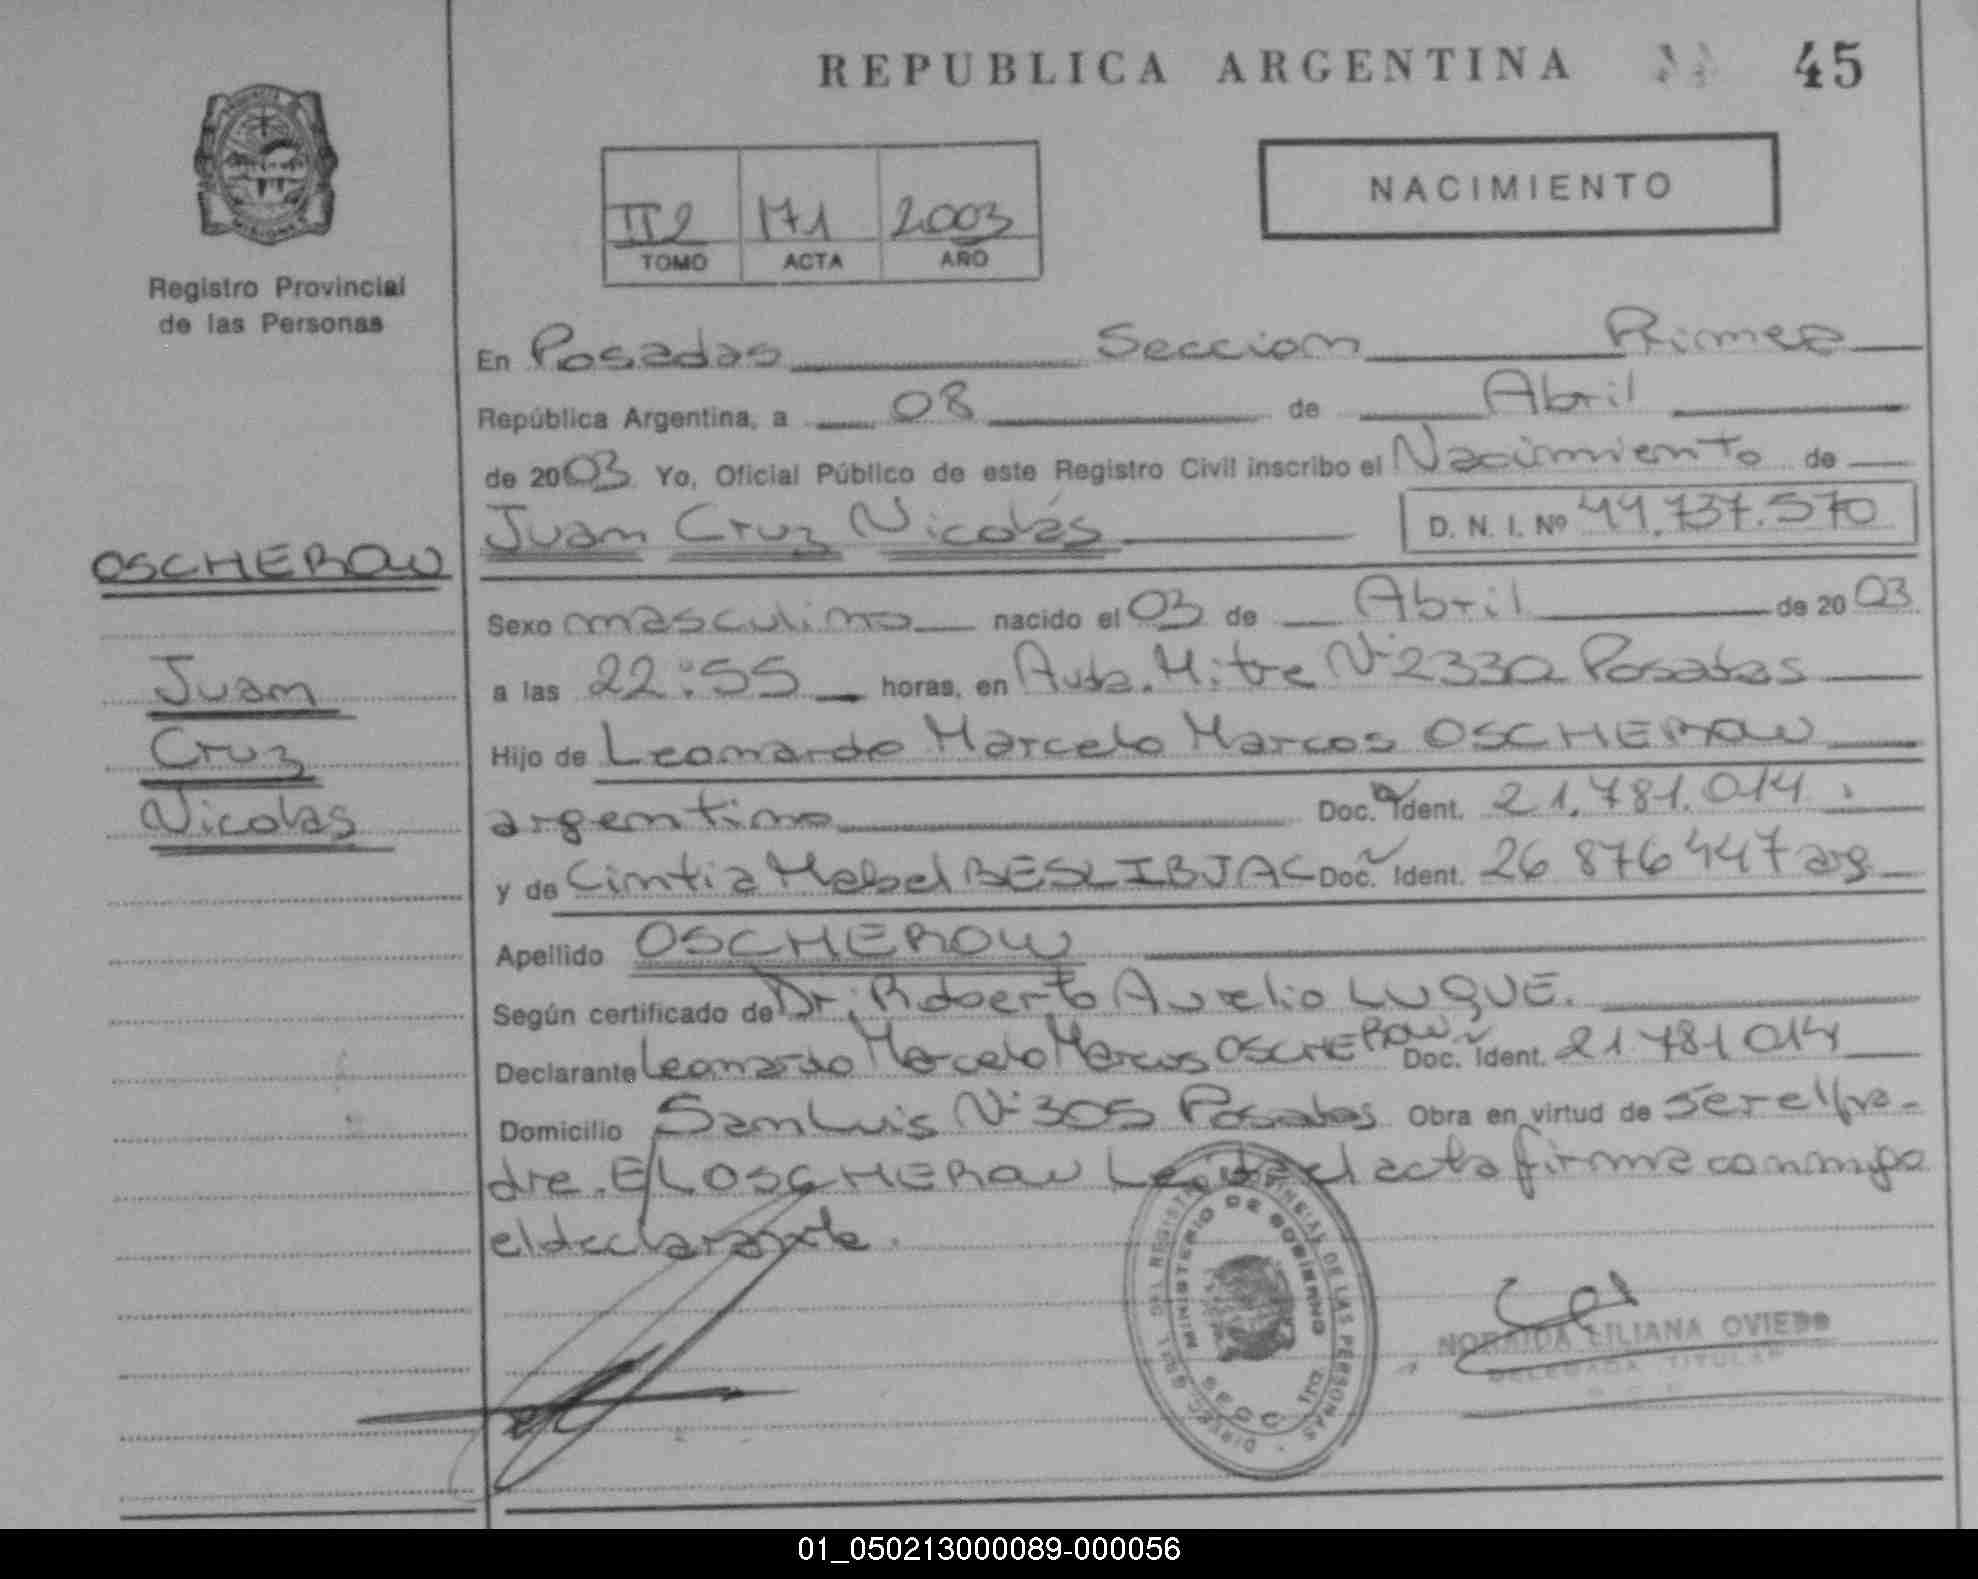 REPUBLICA ARGENTINA 45
NACIMIENTO
II2 171 2003
TOMO ACTA AÑO
Registro Provincial
de las Personas
En Posadas Seccion Primera
República Argentina, a 08 de Abril
de 2003 Yo, Oficial Público de este Registro Civil inscribo el Nacimiento de
Juan Cruz Nicolás D. N. I. Nº 44.737.570
OSCHEROW
Juan
Cruz
Nicolas
Sexo masculino nacido el 03 de Abril de 2003
a las 22:55 horas, en Avda. Mitre Nº 2330 Posadas
Hijo de Leonardo Marcelo Marcos OSCHEROW
argentino Doc. Ident. 21.781.014
y de Cintia Mabel BESLIBJAC Doc. Ident. 26 876 447 arg
Apellido OSCHEROW
Según certificado de Dr: Roberto Aurelio LUQUE.
Declarante Leonardo Marcelo Marcos OSCHEROW Doc. Ident. 21 781 014
Domicilio San Luis Nº 305 Posadas Obra en virtud de ser el pa-
dre. E/L OSCHEROW Leida el acta firma conmigo
el declarante.
DIRECC. GRAL. DEL REGISTRO PROVINCIAL DE LAS PERSONAS
MINISTERIO DE GOBIERNO
SECC. 1ra
NORAIDA LILIANA OVIEDO
DELEGADA TITULAR
01_050213000089-000056